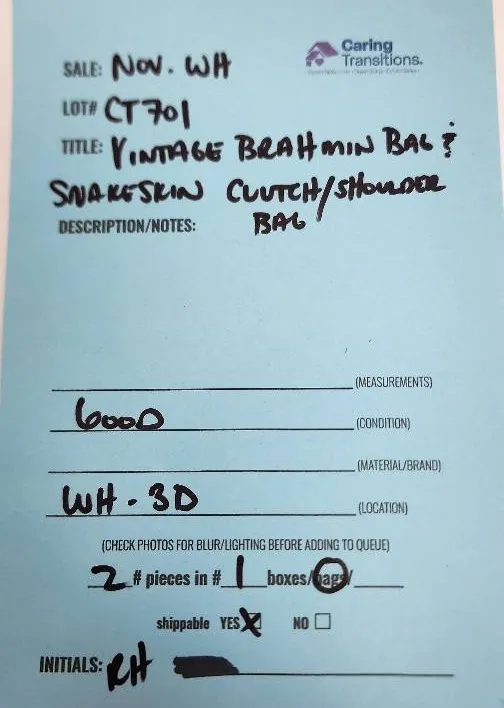 Caring
Transitions.
SALE: NOV. WH
LOT# CT701
TITLE: VINTAGE BRAHMIN BAG &
SNAKESKIN CLUTCH/SHOULDER
BAG
DESCRIPTION/NOTES:
(MEASUREMENTS)
GOOD (CONDITION)
(MATERIAL/BRAND)
WH - 3D (LOCATION)
(CHECK PHOTOS FOR BLUR/LIGHTING BEFORE ADDING TO QUEUE)
2 # pieces in # 1 boxes/bags/
shippable YES X NO
INITIALS: RH